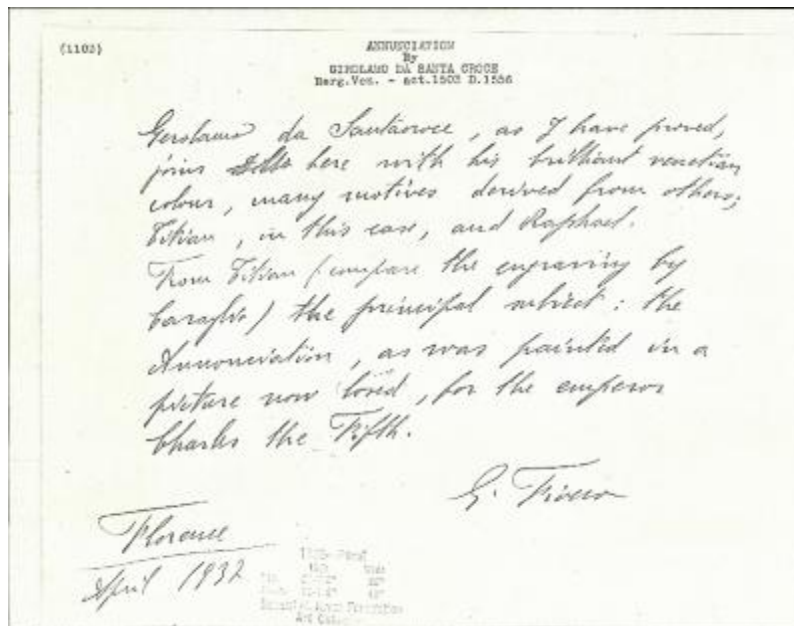 (1103)
ANNUNCIATION
By
GIROLAMO DA SANTA CROCE
Berg.Ven. - act.1503 D.1556
Gerolamo da Santacroce, as I have proved,
joins here with his brilliant venetian
colour, many motives derived from others;
Titian, in this case, and Raphael.
From Titian (compare the engraving by
Caraglio) the principal subject: the
Annonciation, as was painted in a
picture now losed, for the emperor
Charles the Fifth.
G. Fiocco
Florence
April 1932
Foundation
Art